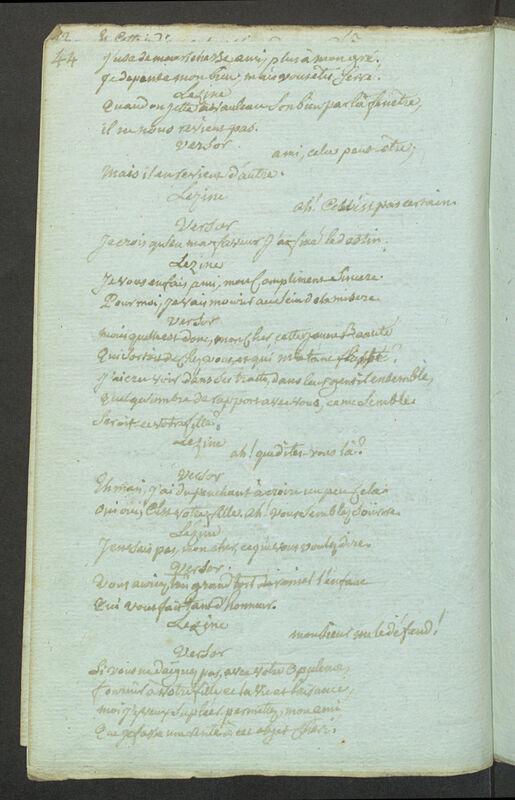 44
J'use de mon richesse ami, plus à mon gré.
je depense mon bien; mais vous etes serré.
Lezine
Quand on jette à vauleau son bien par la fenêtre,
il ne nous revient pas.
Versor
ami, cela peut etre;
Mais il en revient d'autre.
Lezine
Ah! Cela est pas certain
Versor
Je crois qu'en ma faveur J'ai fixé le destin
Lezine
Je vous en fais ami, mon Compliment Sincere
Pour moi, je vais mourir au sein de la misere
Versor
mais quelle est donc, mon cher, cette jeune Beauté
Qui sortoit de chez vous, et qui m'a tant
J'ai cru voir dans ses traits, dans leur gentil ensemble,
quelqu'ombre de rapport avec vous, ce me semble
Seroit ce votre fille?
Lezine
ah! que dites-vous là?
Versor
Eh mais, j'ai du penchant à croire un peu cela
oui oui, C'est votre fille. Ah! vous semblez sourire
Lezine
Je ne sais pas, mon cher, ce que vous voulez dire
Versor.
Vous auriez un grand tort
Qui vous fait tant d'honneur.
Lezine
monsieur me le défend!
Versor
Si vous ne daignez pas, avec votre opulence,
fournir à votre fille et la vie et l'aisance,
moi j'y veux supleer permettez, mon ami
Que je fasse une rente à cet objet cheri.